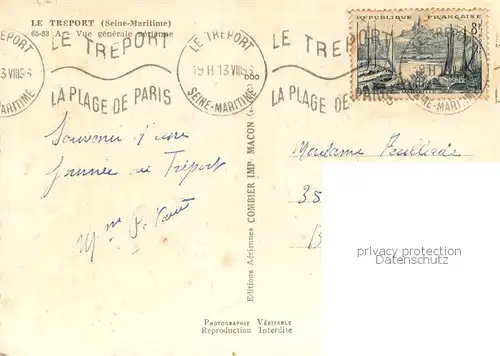 LE TRÉPORT (Seine-Maritime)
65-83 A - Vue générale aérienne
LE TRÉPORT
LA PLAGE DE PARIS
LE TREPORT
19 H 13 VIII 56
SEINE-MARITIME
LE TRÉPORT
LA PLAGE DE PARIS
REPUBLIQUE FRANÇAISE
8F
13 VIII 56
MARITIME
Souvenir d'une
journée au Tréport
Mme
Madame
35
Editions Aériennes COMBIER IMP. MACON
PHOTOGRAPHIE VÉRITABLE
Reproduction Interdite
privacy protection
Datenschutz